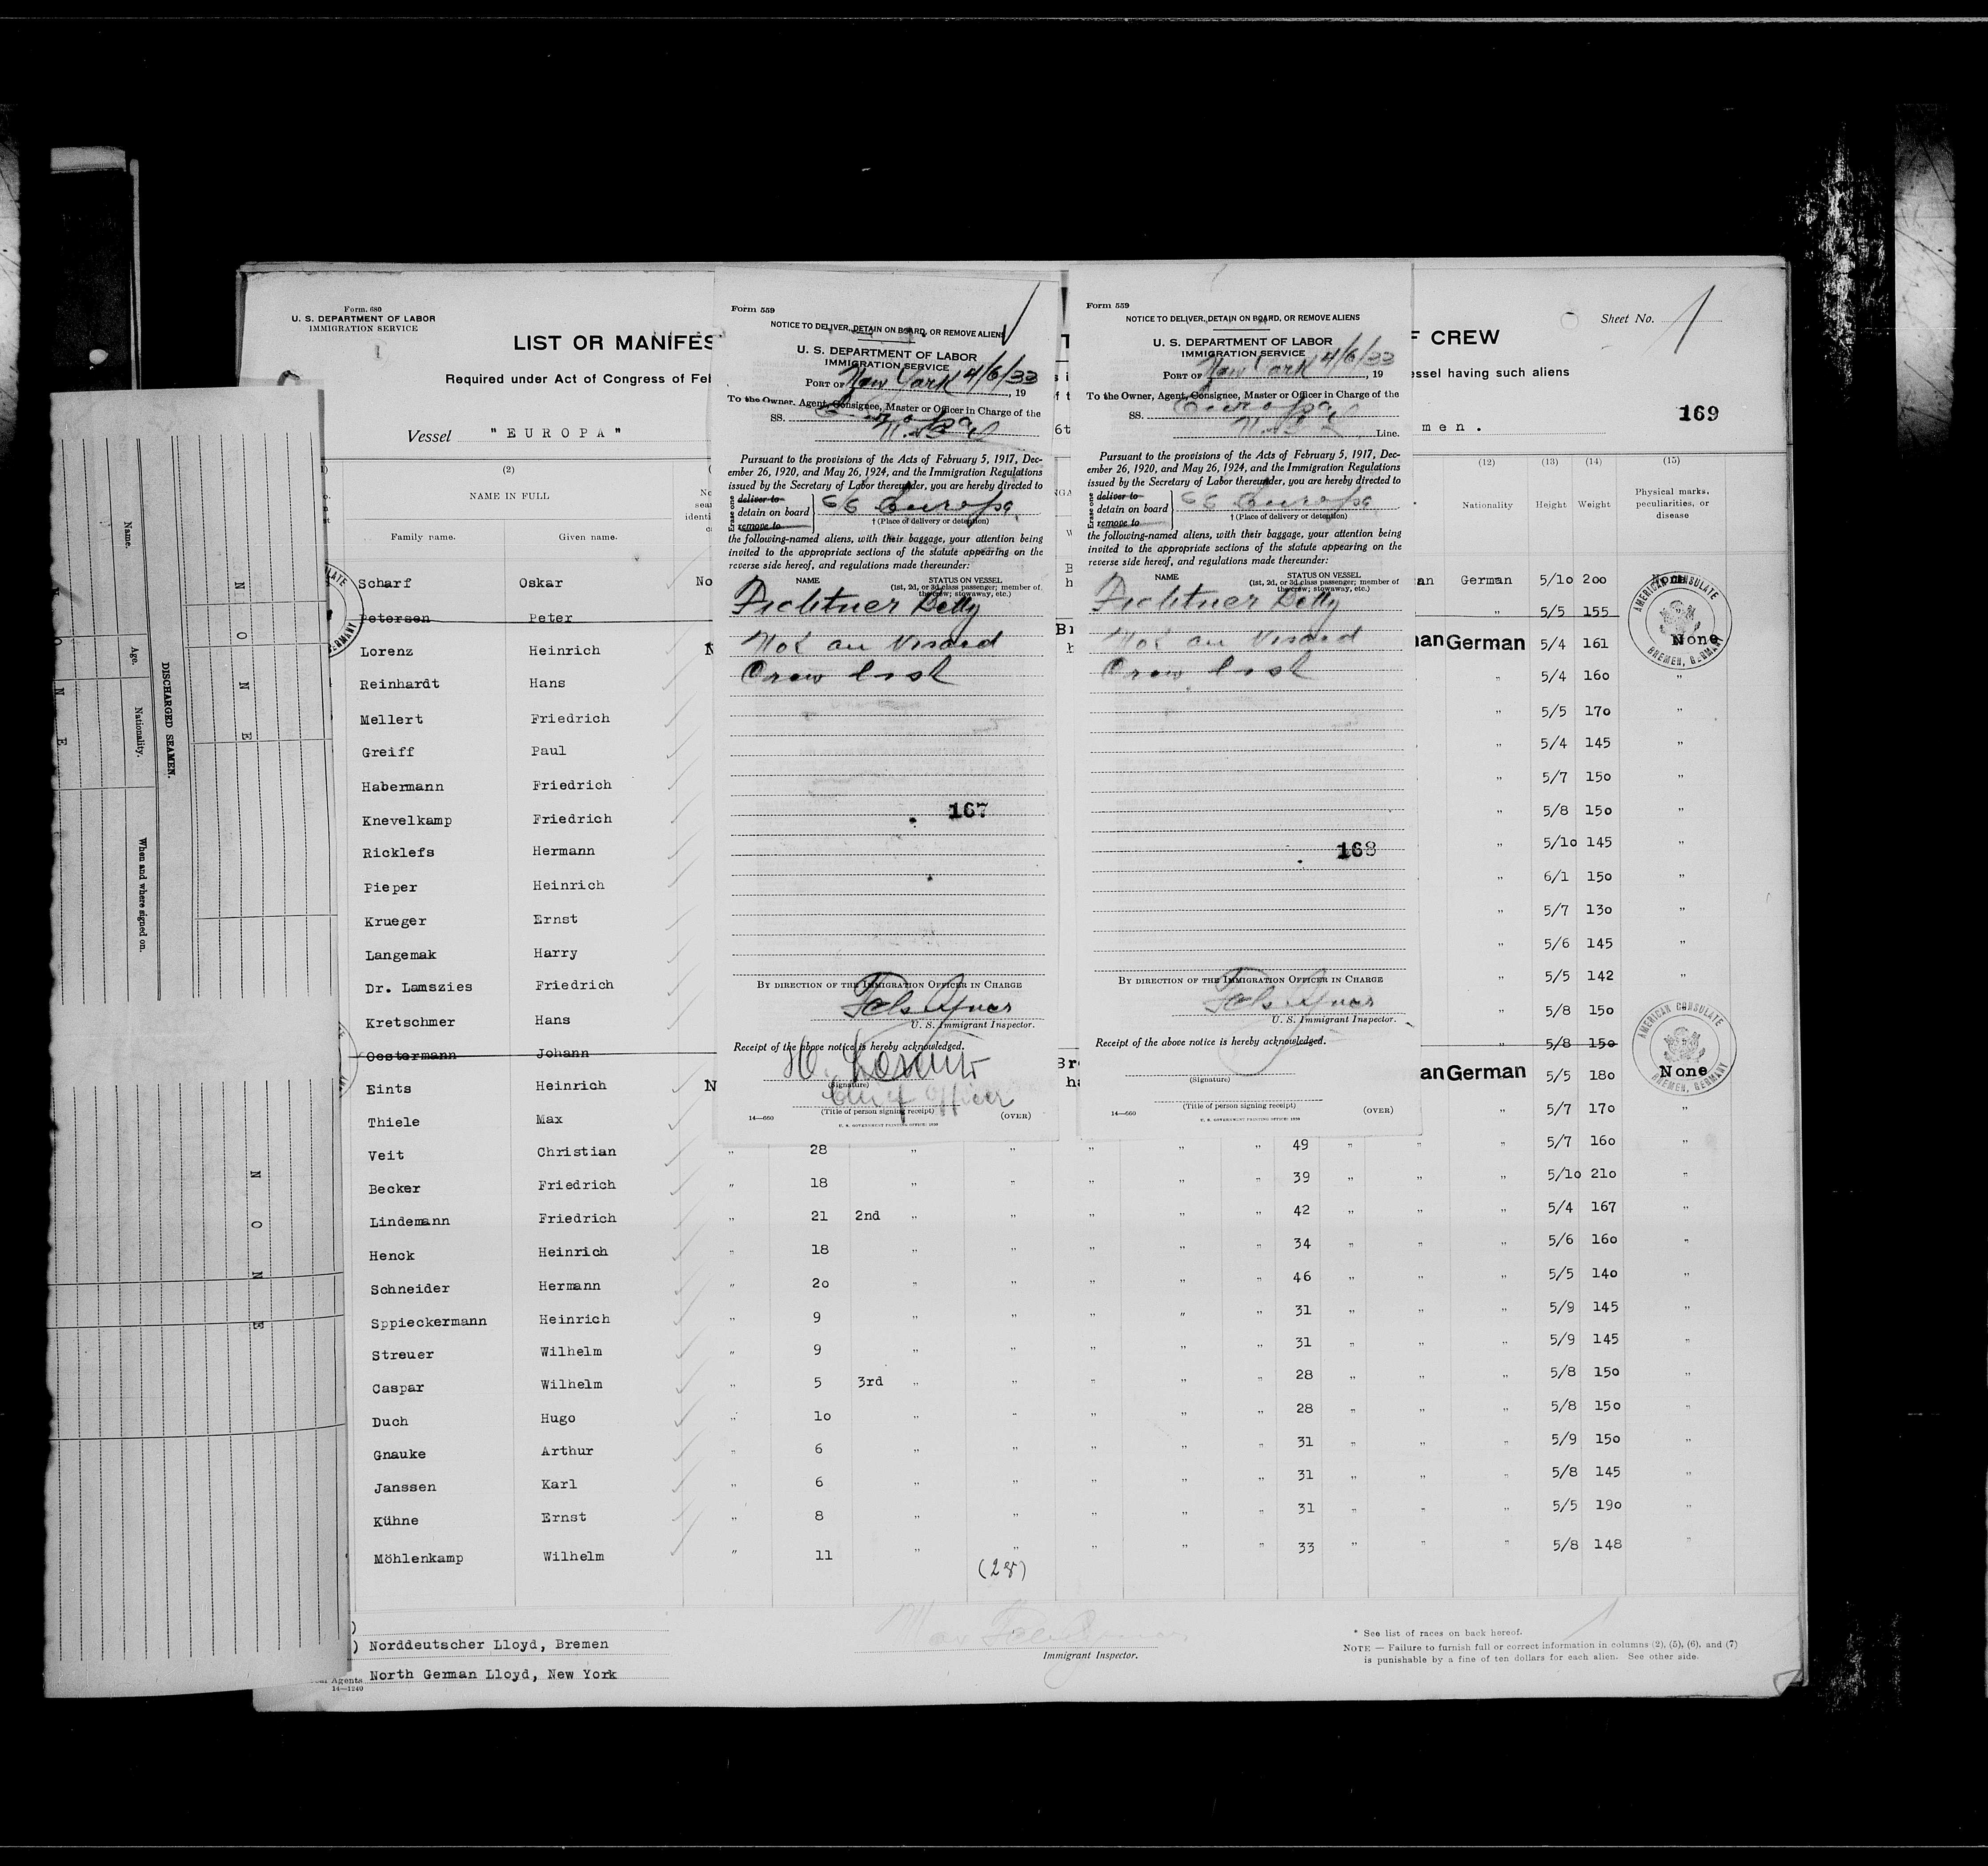 Form 680
U. S. DEPARTMENT OF LABOR
IMMIGRATION SERVICE
LIST OR MANIFES
Required under Act of Congress of Fel
Vessel "EUROPA"
(2)
NAME IN FULL
Family name. Given name.
Scharf Oskar No
Petersen Peter
Lorenz Heinrich N
Reinhardt Hans
Mellert Friedrich
Greiff Paul
Habermann Friedrich
Knevelkamp Friedrich
Ricklefs Hermann
Pieper Heinrich
Krueger Ernst
Langemak Harry
Dr. Lamszies Friedrich
Kretschmer Hans
Oestermann Johann
Eints Heinrich N
Thiele Max
Veit Christian " 28 " " " " " 49 " " " 5/7 160 "
Becker Friedrich " 18 " " " " " 39 " " " 5/10 210 "
Lindemann Friedrich " 21 2nd " " " " " 42 " " " 5/4 167 "
Henck Heinrich " 18 " " " " " 34 " " " 5/6 160 "
Schneider Hermann " 20 " " " " " 46 " " " 5/5 140 "
Sppieckermann Heinrich " 9 " " " " " 31 " " " 5/9 145 "
Streuer Wilhelm " 9 " " " " " 31 " " " 5/9 145 "
Caspar Wilhelm " 5 3rd " " " " " 28 " " " 5/8 150 "
Duch Hugo " 10 " " " " " 28 " " " 5/8 150 "
Gnauke Arthur " 6 " " " " " 31 " " " 5/9 150 "
Janssen Karl " 6 " " " " " 31 " " " 5/8 145 "
Kühne Ernst " 8 " " " " " 31 " " " 5/5 190 "
Möhlenkamp Wilhelm " 11 " " " " " 33 " " " 5/8 148 "
(28)
Norddeutscher Lloyd, Bremen
North German Lloyd, New York
Agents
14—1240
Immigrant Inspector.
* See list of races on back hereof.
NOTE — Failure to furnish full or correct information in columns (2), (5), (6), and (7)
is punishable by a fine of ten dollars for each alien. See other side.
Form 559
NOTICE TO DELIVER, DETAIN ON BOARD, OR REMOVE ALIENS
U. S. DEPARTMENT OF LABOR
IMMIGRATION SERVICE
PORT OF New York 4/6/33, 19
To the Owner, Agent, Consignee, Master or Officer in Charge of the
SS. Europa
Pursuant to the provisions of the Acts of February 5, 1917, Dec-
ember 26, 1920, and May 26, 1924, and the Immigration Regulations
issued by the Secretary of Labor thereunder, you are hereby directed to
Erase one deliver to
detain on board SS Europa
remove to † (Place of delivery or detention)
the following-named aliens, with their baggage, your attention being
invited to the appropriate sections of the statute appearing on the
reverse side hereof, and regulations made thereunder:
NAME STATUS ON VESSEL
(1st, 2d, or 3d class passenger; member of
the crew; stowaway, etc.)
Fichtner Betty
Not on Visaed
Crew list
167
BY DIRECTION OF THE IMMIGRATION OFFICER IN CHARGE
U. S. Immigrant Inspector.
Receipt of the above notice is hereby acknowledged.
(Signature)
Chief Officer
(Title of person signing receipt)
14—660 (OVER)
U. S. GOVERNMENT PRINTING OFFICE
Form 559
NOTICE TO DELIVER, DETAIN ON BOARD, OR REMOVE ALIENS
U. S. DEPARTMENT OF LABOR
IMMIGRATION SERVICE
PORT OF New York 4/6/33, 19
To the Owner, Agent, Consignee, Master or Officer in Charge of the
SS. Europa
Line.
Pursuant to the provisions of the Acts of February 5, 1917, Dec-
ember 26, 1920, and May 26, 1924, and the Immigration Regulations
issued by the Secretary of Labor thereunder, you are hereby directed to
Erase one deliver to
detain on board SS Europa
remove to † (Place of delivery or detention)
the following-named aliens, with their baggage, your attention being
invited to the appropriate sections of the statute appearing on the
reverse side hereof, and regulations made thereunder:
NAME STATUS ON VESSEL
(1st, 2d, or 3d class passenger; member of
the crew; stowaway, etc.)
Fichtner Betty
Not on Visaed
Crew list
168
BY DIRECTION OF THE IMMIGRATION OFFICER IN CHARGE
U. S. Immigrant Inspector.
Receipt of the above notice is hereby acknowledged.
(Signature)
(Title of person signing receipt)
14—660 (OVER)
U. S. GOVERNMENT PRINTING OFFICE
F CREW
Sheet No. 1
essel having such aliens
169
men.
(12) (13) (14) (15)
Nationality Height Weight Physical marks, peculiarities, or disease
an German 5/10 200 None
" 5/5 155
an German 5/4 161 None
" 5/4 160 "
" 5/5 170 "
" 5/4 145 "
" 5/7 150 "
" 5/8 150 "
" 5/10 145 "
" 6/1 150 "
" 5/7 130 "
" 5/6 145 "
" 5/5 142 "
" 5/8 150
" 5/8 150
an German 5/5 180 None
" 5/7 170 "
AMERICAN CONSULATE
BREMEN, GERMANY
AMERICAN CONSULATE
BREMEN, GERMANY
DISCHARGED SEAMEN.
Name. Age. Nationality. When and where signed on.
NONE
NONE
NONE